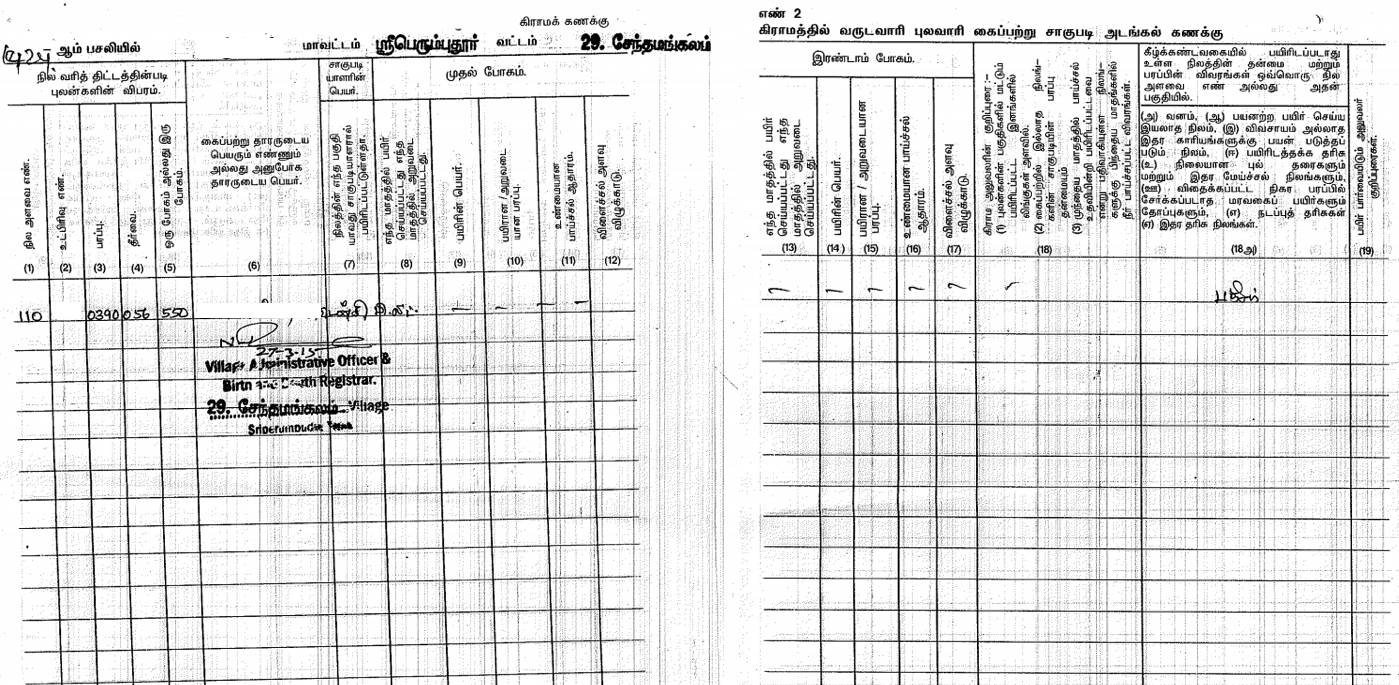 கிராமக் கணக்கு
ஆம் பசலியில் மாவட்டம் ஸ்ரீபெரும்புதூர் வட்டம் 29. சேந்தமங்கலம்
நில வரித் திட்டத்தின்படி புலன்களின் விபரம்.
சாகுபடி யாளரின் பெயர்.
முதல் போகம்.
நில அளவை எண்.
உட்பிரிவு எண்.
பரப்பு.
தீர்வை.
ஒரு போகம் அல்லது இரு போகம்.
கைப்பற்று தாரருடைய
பெயரும் எண்ணும்
அல்லது அனுபோக
தாரருடைய பெயர்.
நிலத்தின் எந்த பகுதி யாவது சாகுபடியாளரால் பயிரிடப்பட்டுள்ளதா.
எந்த மாதத்தில் பயிர் செய்யப்பட்டது எந்த மாதத்தில் அறுவடை செய்யப்பட்டது.
பயிரின் பெயர்.
பயிரான /அறுவடை யான பரப்பு.
உண்மையான பாய்ச்சல் ஆதாரம்.
விளைச்சல் அளவு விழுக்காடு.
(1) (2) (3) (4) (5) (6) (7) (8) (9) (10) (11) (12)
110 0390 056 550
27-3-15
Village Administrative Officer &
Birth and Death Registrar.
29. சேந்தமங்கலம் Village
Sriperumbudur Taluk
எண் 2
கிராமத்தில் வருடவாரி புலவாரி கைப்பற்று சாகுபடி அடங்கல் கணக்கு
இரண்டாம் போகம்.
எந்த மாதத்தில் பயிர் செய்யப்பட்டது எந்த மாதத்தில் அறுவடை செய்யப்பட்டது.
பயிரின் பெயர்.
பயிரான / அறுவடையான பரப்பு.
உண்மையான பாய்ச்சல் ஆதாரம்.
விளைச்சல் அளவு விழுக்காடு.
கிராம அலுவலரின் குறிப்புரை :–
(1) புலன்களின் பகுதிகளில் மட்டும் பயிரிடப்பட்ட இனங்களில்
(2) கைப்பற்றில் இல்லாத நிலங்–களின் சாகுபடியின் பரப்பு தன்மையும்
(3) முந்தைய மாதத்தில் பாய்ச்சல்
நீர் பாய்ச்சப்பட்ட விவரங்கள்.
கீழ்க்கண்டவகையில் பயிரிடப்படாது
உள்ள நிலத்தின் தன்மை மற்றும்
பரப்பின் விவரங்கள் ஒவ்வொரு நில
அளவை எண் அல்லது அதன்
பகுதியில்.
(அ) வனம், (ஆ) பயனற்ற பயிர் செய்ய
இயலாத நிலம், (இ) விவசாயம் அல்லாத
இதர காரியங்களுக்கு பயன் படுத்தப்
படும் நிலம், (ஈ) பயிரிடத்தக்க தரிசு
(உ) நிலையான புல் தரைகளும்
மற்றும் இதர மேய்ச்சல் நிலங்களும்,
(ஊ) விதைக்கப்பட்ட நிகர பரப்பில்
சேர்க்கப்படாத மரவகைப் பயிர்களும்
தோப்புகளும், (எ) நடப்புத் தரிசுகள்
(ஏ) இதர தரிசு நிலங்கள்.
பயிர் பார்வையிடும் அலுவலர் குறிப்புரைகள்.
(13) (14) (15) (16) (17) (18) (18அ) (19)